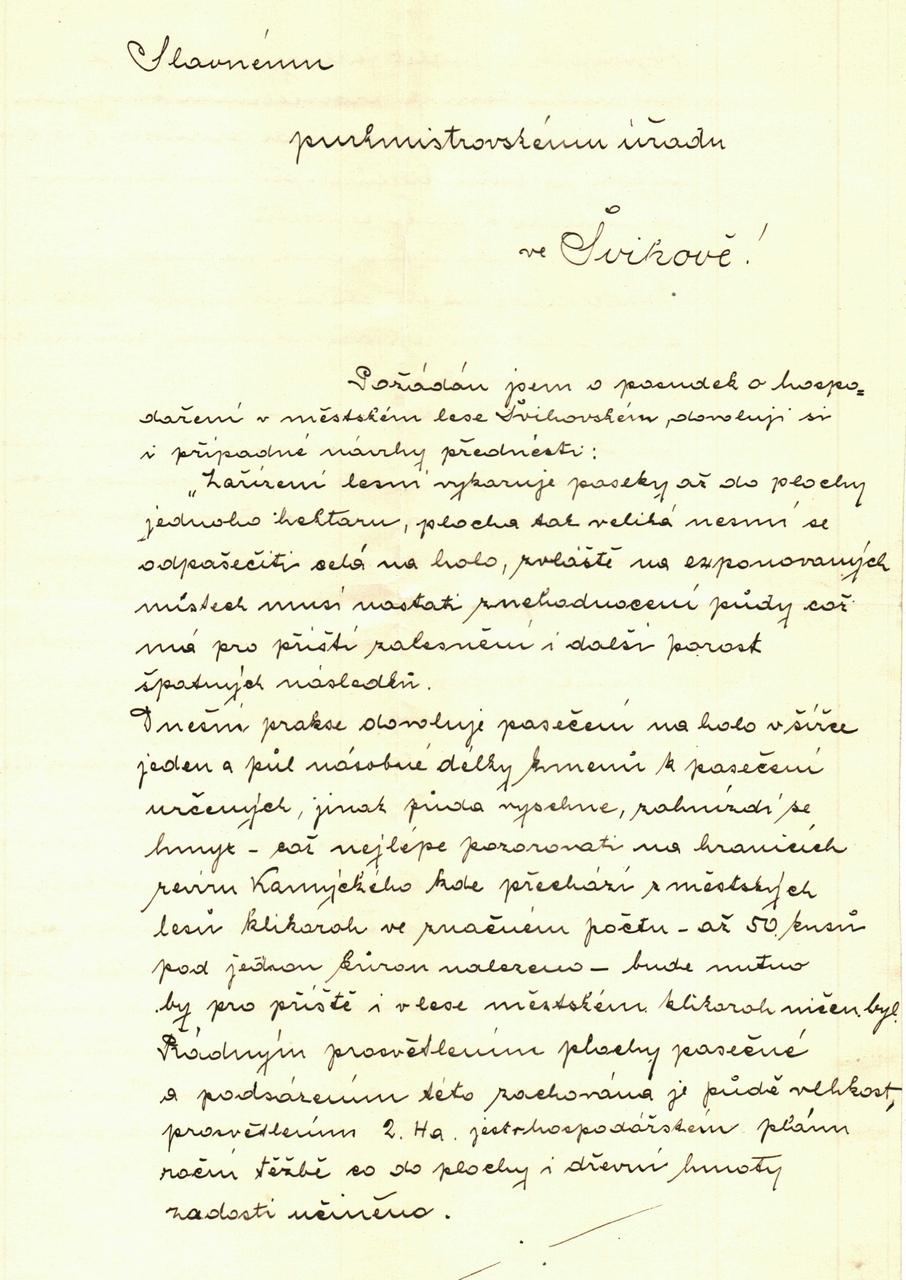 Slavnému
purkmistrovskému úřadu
ve Švihově!
Požádán jsem o posudek o hospo=
daření v městském lese Švihovském, dovoluji si
i případné návrhy přednésti:
„Zařízení lesní vykazuje paseky až do plochy
jednoho hektaru, plocha tak veliká nesmí se
odpašečiti celá na holo, zvláště na exponovaných
místech musí nastati znehodnocení půdy což
má pro příští zalesnění i další porost
špatných následků.
Dnešní prakse dovoluje pasečení na holo v šířce
jeden a půl násobné délky kmenů k pasečení
určených, jinak půda vyschne, zahnízdí se
hmyz – což nejlépe pozorovati na hranicích
revíru Kamýckého kde přechází z městských
lesů klikoroh ve značném počtu – až 50 kusů
pod jednou kůrou nalezeno – bude nutno
by pro příště i v lese městském klikoroh ničen byl.
Řádným prosvětlením plochy pasečné
a podsázením této zachována je půdě vlhkost,
prosvětlením 2. Ha. jest hospodářském plánu
roční těžbě co do plochy i dřevní hmoty
zadosti učiněno.